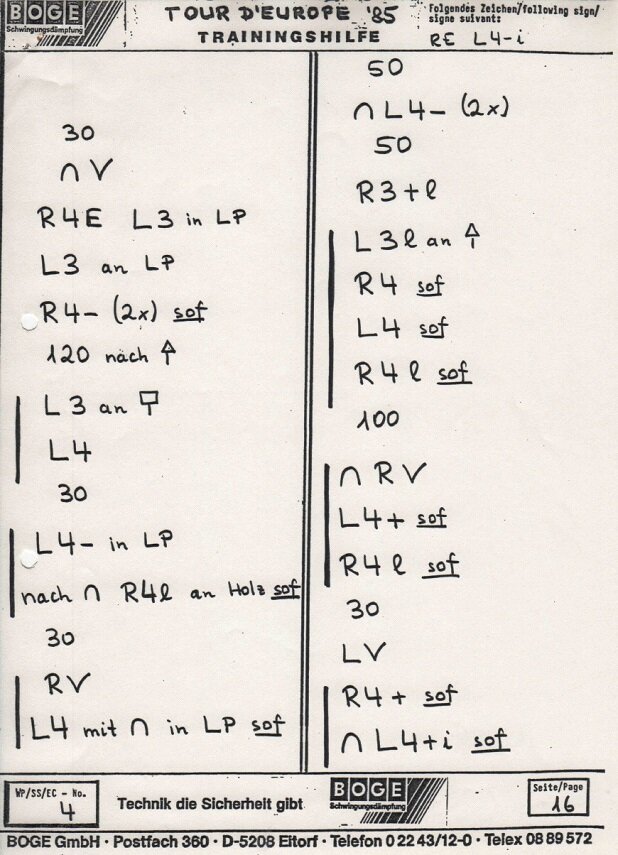 BOGE
Schwingungsdämpfung
TOUR D'EUROPE '85
TRAININGSHILFE
Folgendes Zeichen/following sign/
signe suivant:
RE L4-i
30
∩ V
R4E L3 in LP
L3 an LP
R4- (2x) sof
120 nach ↑
L3 an
L4
30
L4- in LP
nach ∩ R4l an Holz sof
30
RV
L4 mit ∩ in LP sof
50
∩ L4- (2x)
50
R3+l
L3l an ↑
R4 sof
L4 sof
R4l sof
100
∩ RV
L4+ sof
R4l sof
30
LV
R4+ sof
∩ L4+i sof
WP/SS/EC - No.
4
Technik die Sicherheit gibt
BOGE
Schwingungsdämpfung
Seite/Page
16
BOGE GmbH · Postfach 360 · D-5208 Eitorf · Telefon 0 22 43/12-0 · Telex 08 89 572